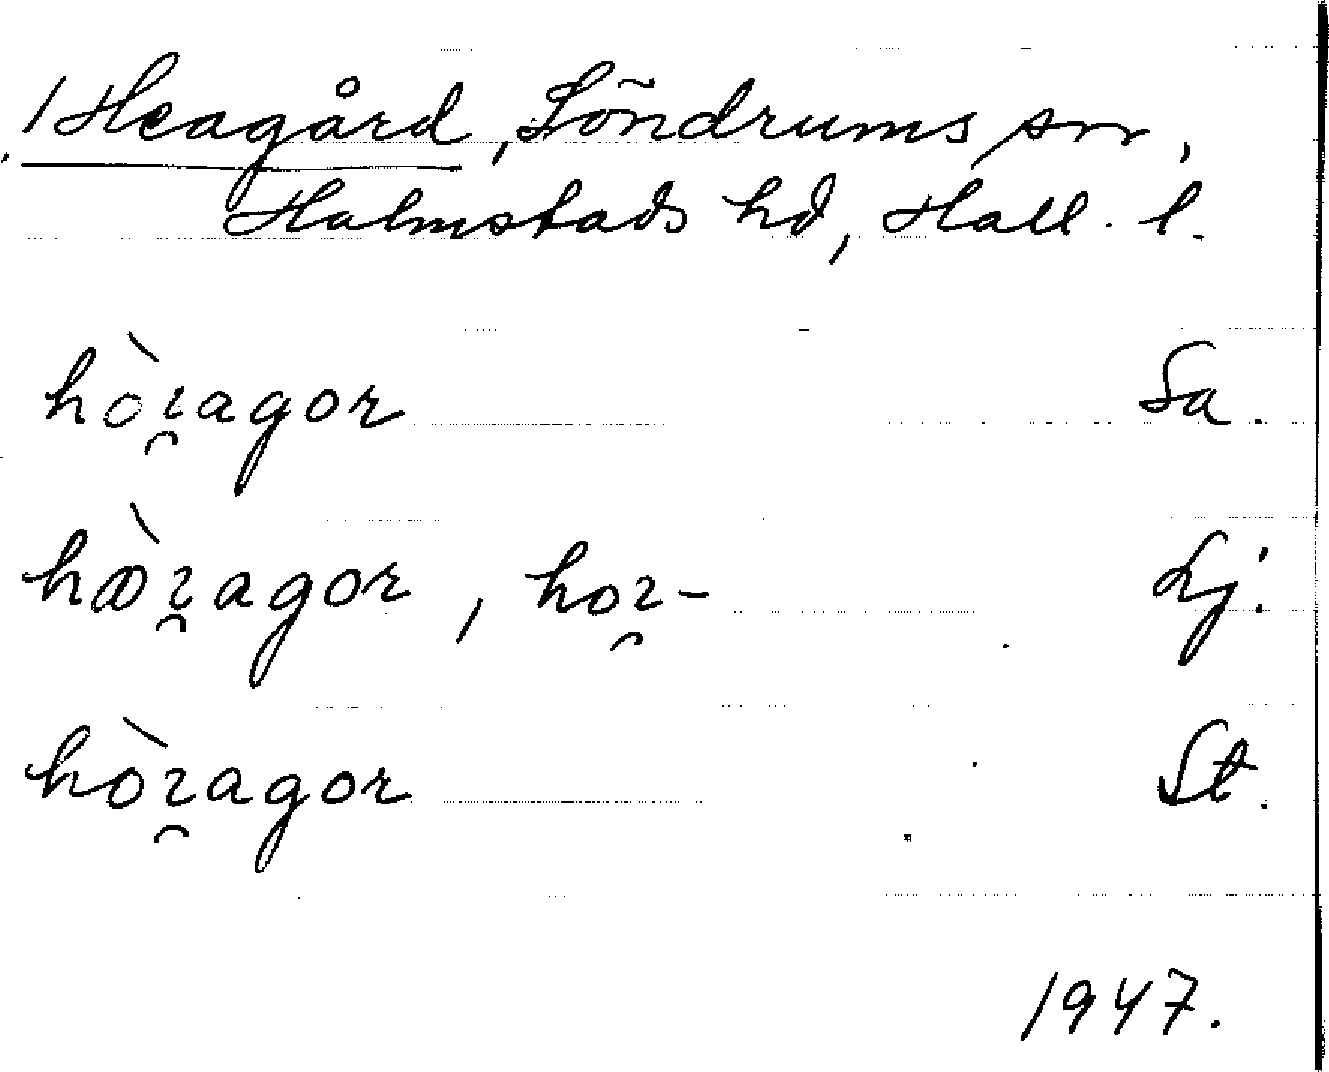 1 Heagård, Söndrums sn,
Halmstads hd, Hall. l.
hòɿ̯agor Sa.
hàɿ̯agor, hoɿ̯- Lj.
hòɿ̯agor St.
1947.